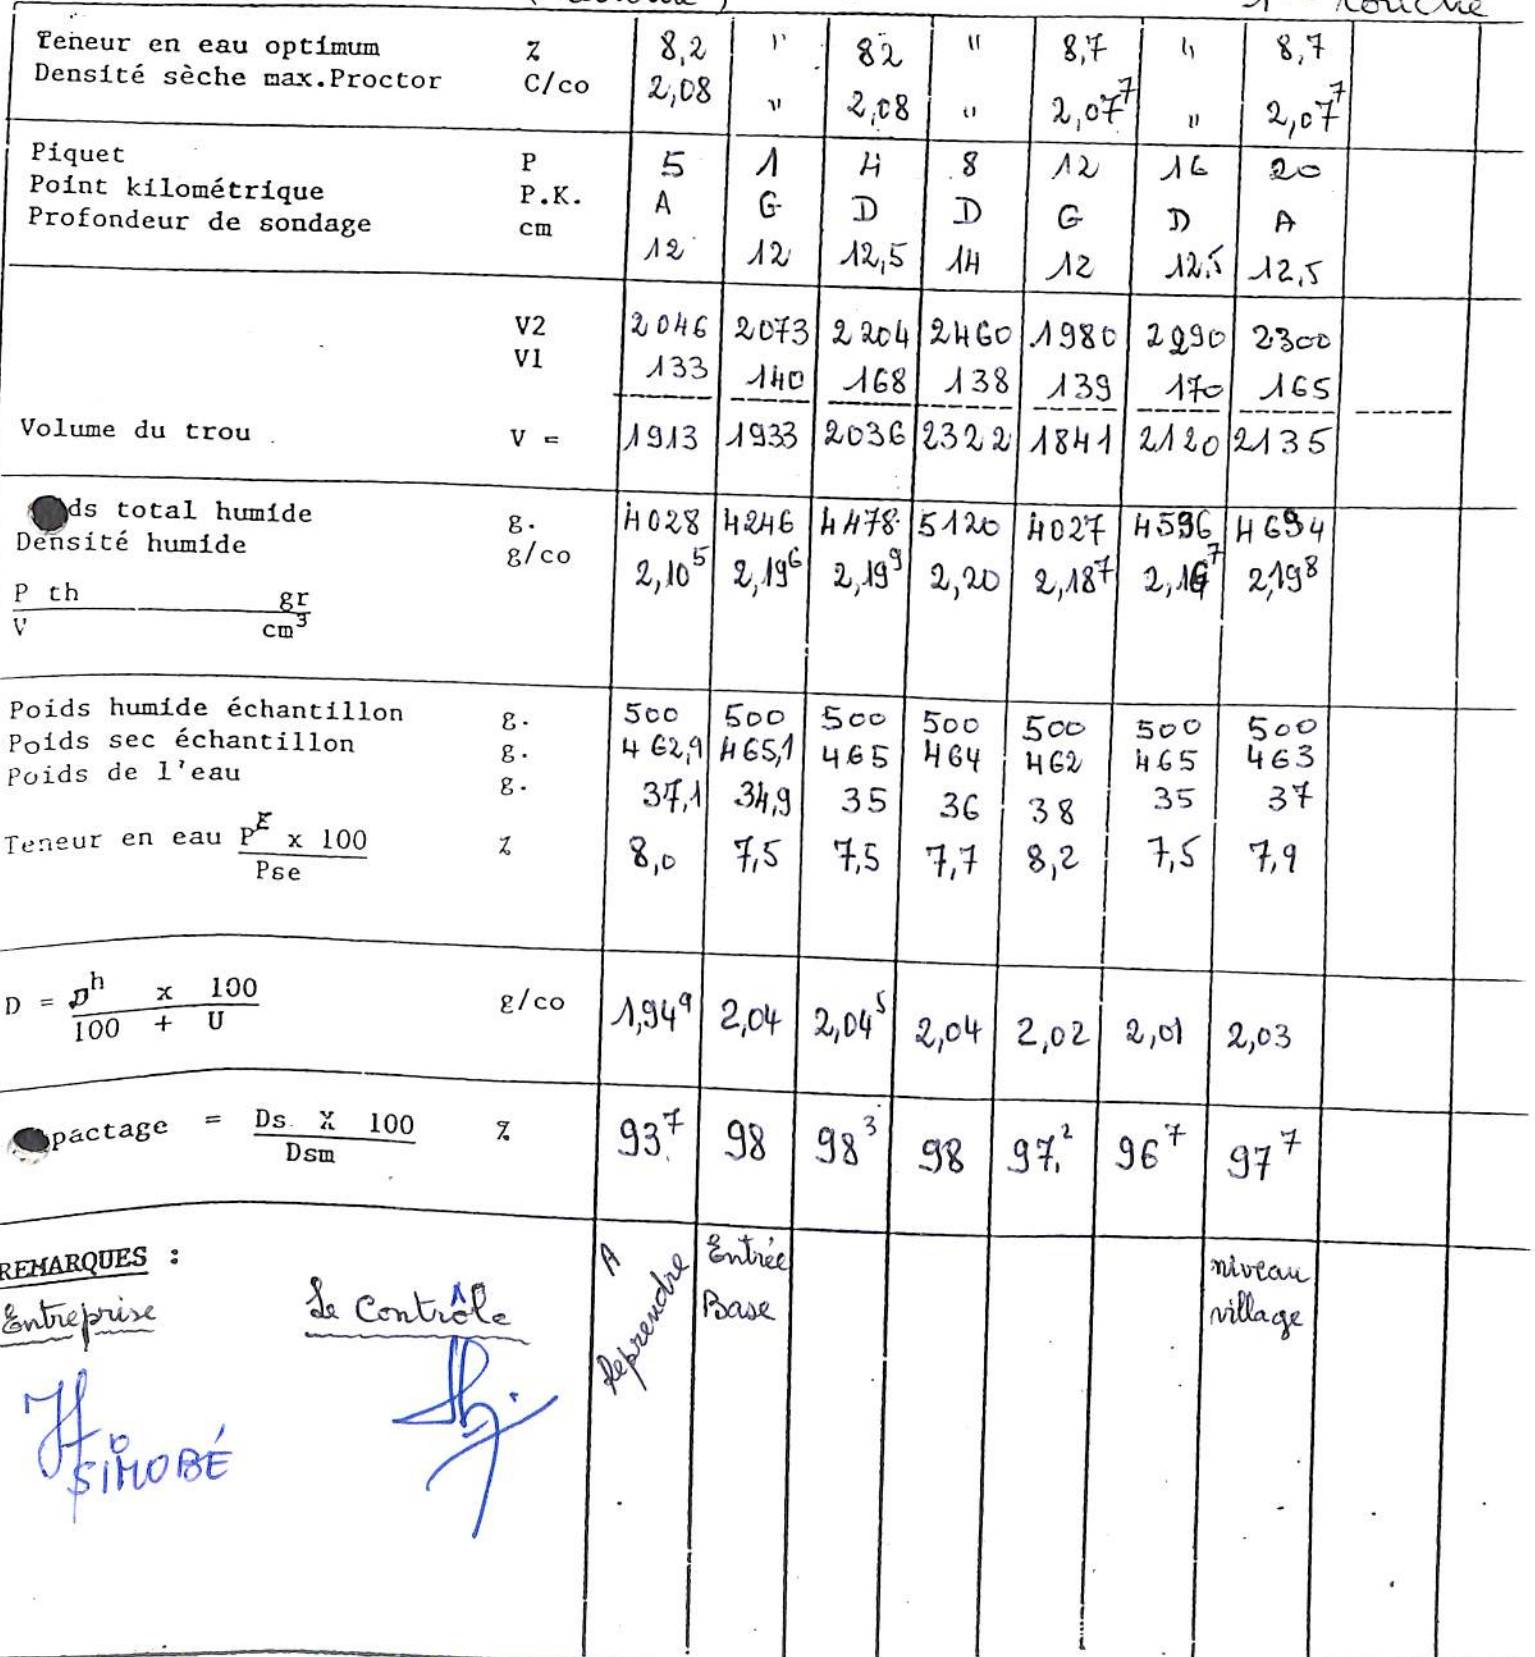 1 Couche
Teneur en eau optimum % 8,2 " 82 " 8,7 " 8,7
Densité sèche max.Proctor C/co 2,08 " 2,08 " 2,07⁷ " 2,07⁷
Piquet P 5 1 4 8 12 16 20
Point kilométrique P.K. A G D D G D A
Profondeur de sondage cm 12 12 12,5 14 12 12,5 12,5
V2 2046 2073 2204 2460 1980 2290 2300
V1 133 140 168 138 139 170 165
Volume du trou V = 1913 1933 2036 2322 1841 2120 2135
ds total humide g. 4028 4246 4478 5120 4027 4596 4694
Densité humide g/co 2,10⁵ 2,19⁶ 2,19⁹ 2,20 2,18⁷ 2,16⁷ 2,19⁸
P th gr
V cm³
Poids humide échantillon g. 500 500 500 500 500 500 500
Poids sec échantillon g. 462,9 465,1 465 464 462 465 463
Poids de l'eau g. 37,1 34,9 35 36 38 35 37
Teneur en eau P^E x 100 % 8,0 7,5 7,5 7,7 8,2 7,5 7,9
Pse
D = D^h x 100 g/co 1,94⁹ 2,04 2,04⁵ 2,04 2,02 2,01 2,03
100 + U
pactage = Ds. X 100 % 93⁷ 98 98³ 98 97,² 96⁷ 97⁷
Dsm
REMARQUES :
Entreprise
Le Contrôle
A Reprendre
Entrée
Base
niveau
village
SIMOBÉ